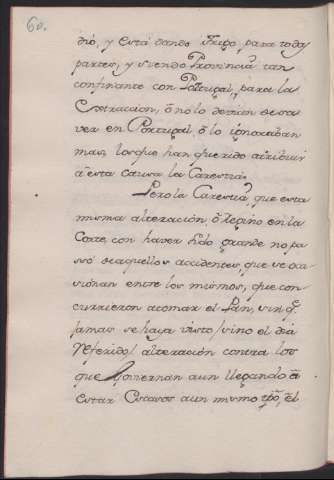 60.
dió, y está dando trigo, para todas
partes, y siendo Provincia tan
confinante con Portugal, para la
Extraccion, ò no lo devian de sa
ver en Portugal, ò lo ignoraban
mas, los que han querido atribuir
a esta causa la Carestia.
Pero la Carestia, que esta
misma alteracion, ò le pino en la
Corte con haver sido grande no pa
só de aquellos accidentes, que se oca
sionan entre los mismos, que con
currieron a tomar el Pan, sin q.
jamas se haya visto / sino el dia
referido / alteracion contra los
que Goviernan aun llegando à
estar escasos aun mismo tpo, el